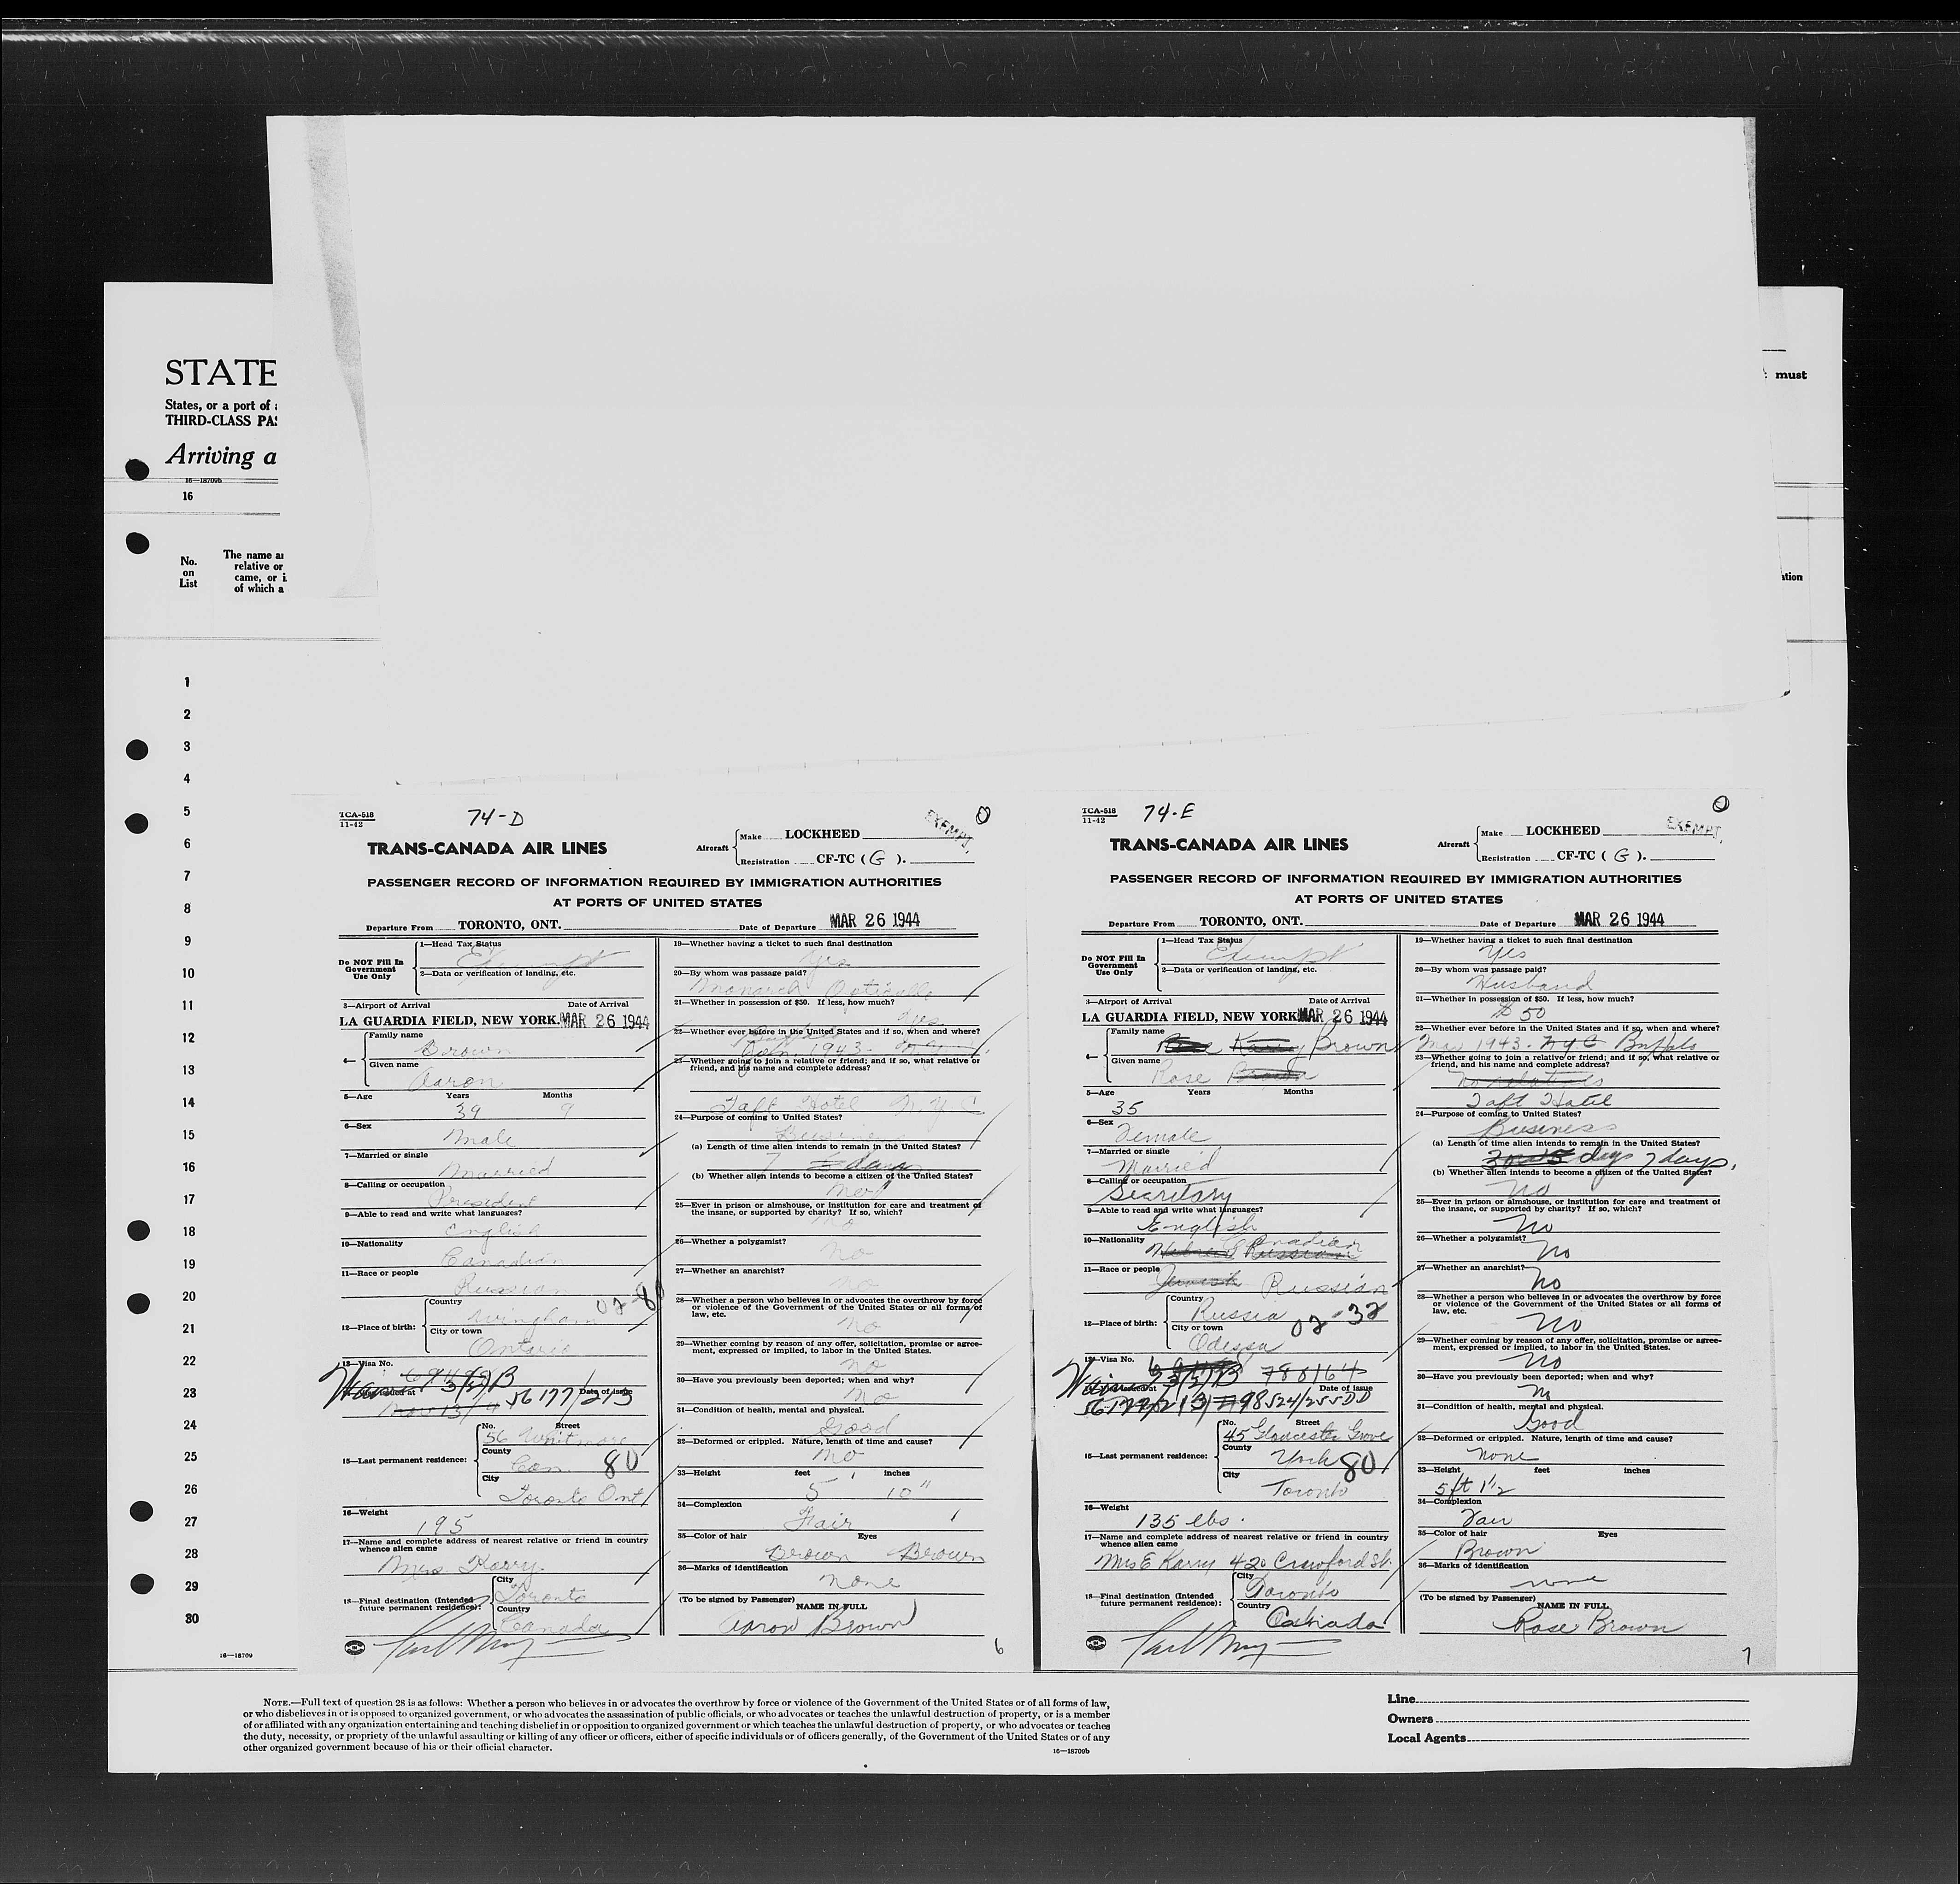 STATE
States, or a port of
THIRD-CLASS PAS
Arriving a
16—18709b
16
No.
on
List
The name an
relative or
came, or i
of which a
: must
ation
1
2
3
4
5
6
7
8
9
10
11
12
13
14
15
16
17
18
19
20
21
22
23
24
25
26
27
28
29
30
16—18709
TCA-518
11-42
74-D
EXEMPT.
TRANS-CANADA AIR LINES
Aircraft
Make LOCKHEED
Registration CF-TC (G).
PASSENGER RECORD OF INFORMATION REQUIRED BY IMMIGRATION AUTHORITIES
AT PORTS OF UNITED STATES
Departure From TORONTO, ONT. Date of Departure MAR 26 1944
Do NOT Fill In
Government
Use Only
1—Head Tax Status
Exempt
2—Data or verification of landing, etc.
3—Airport of Arrival Date of Arrival
LA GUARDIA FIELD, NEW YORK. MAR 26 1944
4—
Family name
Brown
Given name
Aaron
5—Age Years Months
39 9
6—Sex
Male
7—Married or single
Married
8—Calling or occupation
President
9—Able to read and write what languages?
English
10—Nationality
Canadian
11—Race or people
Russian
12—Place of birth:
Country
02-80
City or town
Ontario
13—Visa No.
Date of issue
56177/213
15—Last permanent residence:
No. Street
56 Whitmore
County
Can. 80
City
Toronto Ont
16—Weight
195
17—Name and complete address of nearest relative or friend in country
whence alien came
Mrs Karry
18—Final destination (Intended
future permanent residence):
City
Toronto
Country
Canada
19—Whether having a ticket to such final destination
Yes
20—By whom was passage paid?
Monarch
21—Whether in possession of $50. If less, how much?
Yes
22—Whether ever before in the United States and if so, when and where?
Buffalo
1943.
23—Whether going to join a relative or friend; and if so, what relative or
friend, and his name and complete address?
Taft Hotel N.Y.C.
24—Purpose of coming to United States?
Business
(a) Length of time alien intends to remain in the United States?
7 days
(b) Whether alien intends to become a citizen of the United States?
No
25—Ever in prison or almshouse, or institution for care and treatment of
the insane, or supported by charity? If so, which?
No
26—Whether a polygamist?
No
27—Whether an anarchist?
No
28—Whether a person who believes in or advocates the overthrow by force
or violence of the Government of the United States or all forms of
law, etc.
No
29—Whether coming by reason of any offer, solicitation, promise or agree-
ment, expressed or implied, to labor in the United States.
No
30—Have you previously been deported; when and why?
No
31—Condition of health, mental and physical.
Good
32—Deformed or crippled. Nature, length of time and cause?
No
33—Height feet inches
5' 10"
34—Complexion
Fair
35—Color of hair Eyes
Brown Brown
36—Marks of identification
None
(To be signed by Passenger)
NAME IN FULL
Aaron Brown
6
TCA-518
11-42
74-E
EXEMPT.
TRANS-CANADA AIR LINES
Aircraft
Make LOCKHEED
Registration CF-TC (G).
PASSENGER RECORD OF INFORMATION REQUIRED BY IMMIGRATION AUTHORITIES
AT PORTS OF UNITED STATES
Departure From TORONTO, ONT. Date of Departure MAR 26 1944
Do NOT Fill In
Government
Use Only
1—Head Tax Status
Exempt
2—Data or verification of landing, etc.
3—Airport of Arrival Date of Arrival
LA GUARDIA FIELD, NEW YORK MAR 26 1944
4—
Family name
Karry Brown
Given name
Rose Brown
5—Age Years Months
35
6—Sex
Female
7—Married or single
Married
8—Calling or occupation
Secretary
9—Able to read and write what languages?
English
10—Nationality
Canadian
Russian
11—Race or people
Jewish Russian
12—Place of birth:
Country
Russia
02-32
City or town
Odessa
13—Visa No.
780164
Date of issue
98524/255DD
15—Last permanent residence:
No. Street
45 Gloucester Grove
County
York 80
City
Toronto
16—Weight
135 lbs.
17—Name and complete address of nearest relative or friend in country
whence alien came
Mrs E Karry 420 Crawford St.
18—Final destination (Intended
future permanent residence):
City
Toronto
Country
Canada
19—Whether having a ticket to such final destination
Yes
20—By whom was passage paid?
Husband
21—Whether in possession of $50. If less, how much?
$50
22—Whether ever before in the United States and if so, when and where?
Mar 1943. NYC Buffalo
23—Whether going to join a relative or friend; and if so, what relative or
friend, and his name and complete address?
no relatives
Taft Hotel
24—Purpose of coming to United States?
Business
(a) Length of time alien intends to remain in the United States?
days 7 days.
(b) Whether alien intends to become a citizen of the United States?
No
25—Ever in prison or almshouse, or institution for care and treatment of
the insane, or supported by charity? If so, which?
No
26—Whether a polygamist?
No
27—Whether an anarchist?
No
28—Whether a person who believes in or advocates the overthrow by force
or violence of the Government of the United States or all forms of
law, etc.
No
29—Whether coming by reason of any offer, solicitation, promise or agree-
ment, expressed or implied, to labor in the United States.
No
30—Have you previously been deported; when and why?
No
31—Condition of health, mental and physical.
Good
32—Deformed or crippled. Nature, length of time and cause?
None
33—Height feet inches
5 ft 1½
34—Complexion
Fair
35—Color of hair Eyes
Brown
36—Marks of identification
none
(To be signed by Passenger)
NAME IN FULL
Rose Brown
7
NOTE.—Full text of question 28 is as follows: Whether a person who believes in or advocates the overthrow by force or violence of the Government of the United States or of all forms of law,
or who disbelieves in or is opposed to organized government, or who advocates the assassination of public officials, or who advocates or teaches the unlawful destruction of property, or is a member
of or affiliated with any organization entertaining and teaching disbelief in or opposition to organized government or which teaches the unlawful destruction of property, or who advocates or teaches
the duty, necessity, or propriety of the unlawful assaulting or killing of any officer or officers, either of specific individuals or of officers generally, of the Government of the United States or of any
other organized government because of his or their official character.
16—18709b
Line
Owners
Local Agents